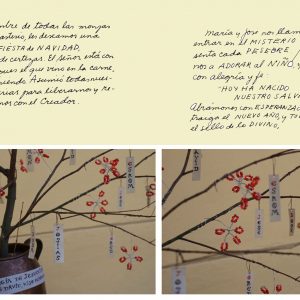 mbre de todas las monjas
asterio, les deseamos una
FIESTA de NAVIDAD,
de certezas. El Señor está con
ques el que vino en la carne,
iendo Asumió todas nues-
rias para liberarnos y re-
nos con el Creador.
María y José nos llama
entrar en el MISTERIO
senta cada PESEBRE
nos a ADORAR al NIÑO, y
con alegría y fe:
"HOY HA NACIDO
NUESTRO SALV
Abrámonos con ESPERANZA
traiga el NUEVO AÑO, y TO
el sello de lo DIVINO,
DAVID
JOSIAS
ESROM
JESE
ESROM
JOSIAS
JESE